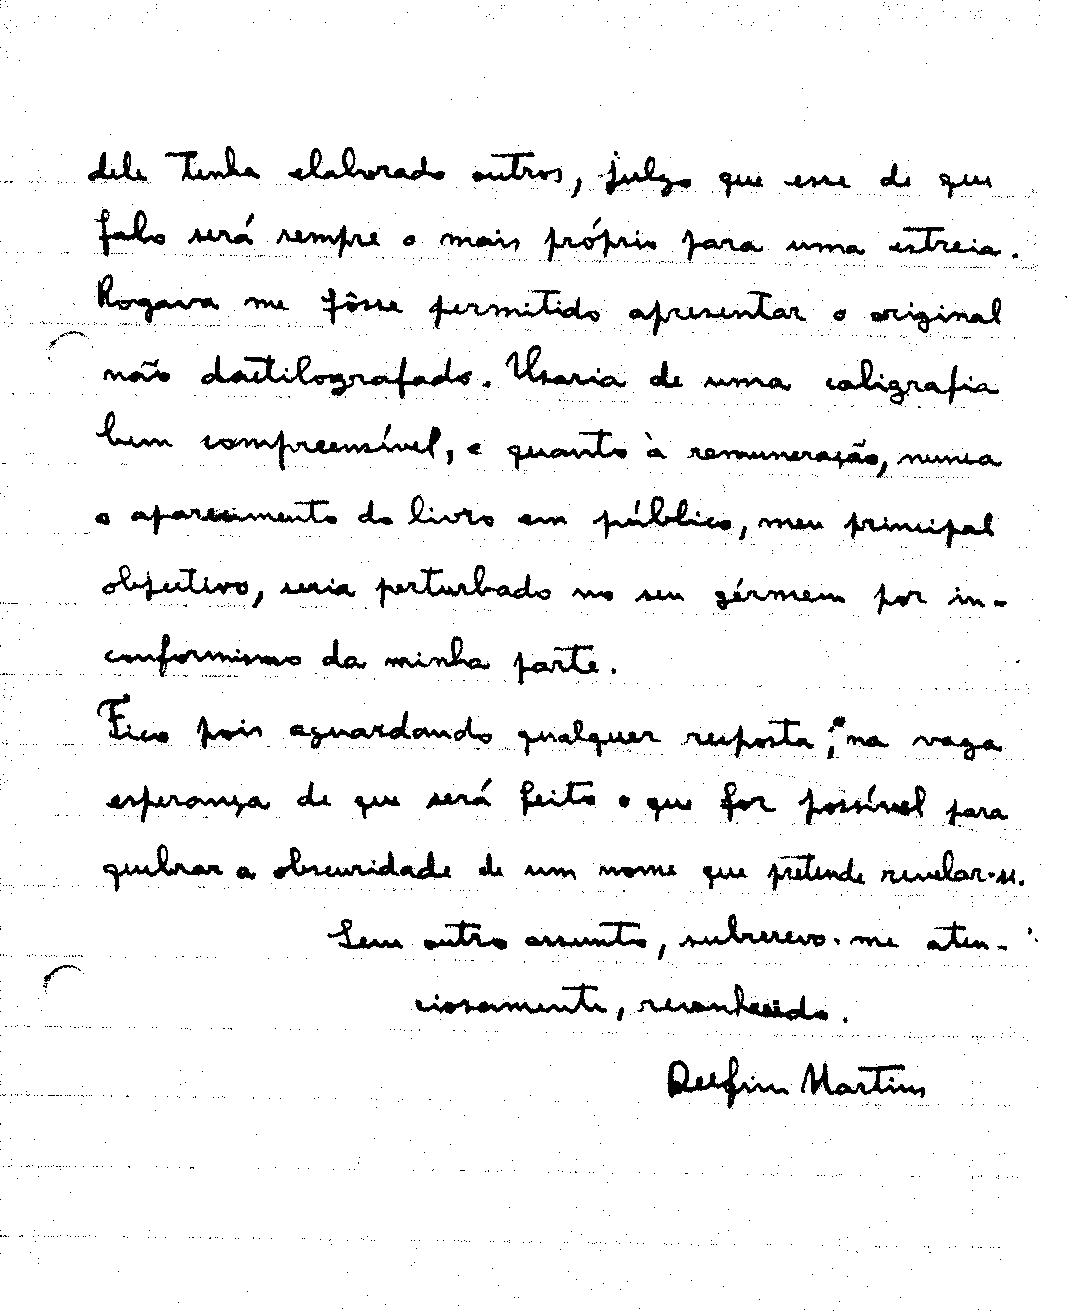 dele tenha elaborado outros, julgo que esse de que
falo será sempre o mais próprio para uma estreia.
Rogava me fôsse permitido apresentar o original
não dactilografado. Usaria de uma caligrafia
bem compreensível, e quanto à remuneração, nunca
o aparecimento do livro em público, meu principal
objectivo, seria perturbado no seu gérmem por in-
conformismo da minha parte.
Fico pois aguardando qualquer resposta, na vaga
esperança de que será feito o que for possível para
quebrar a obscuridade de um nome que pretende revelar-se.
Sem outro assunto, subscrevo-me aten-
ciosamente, reconhecido.
Delfim Martins